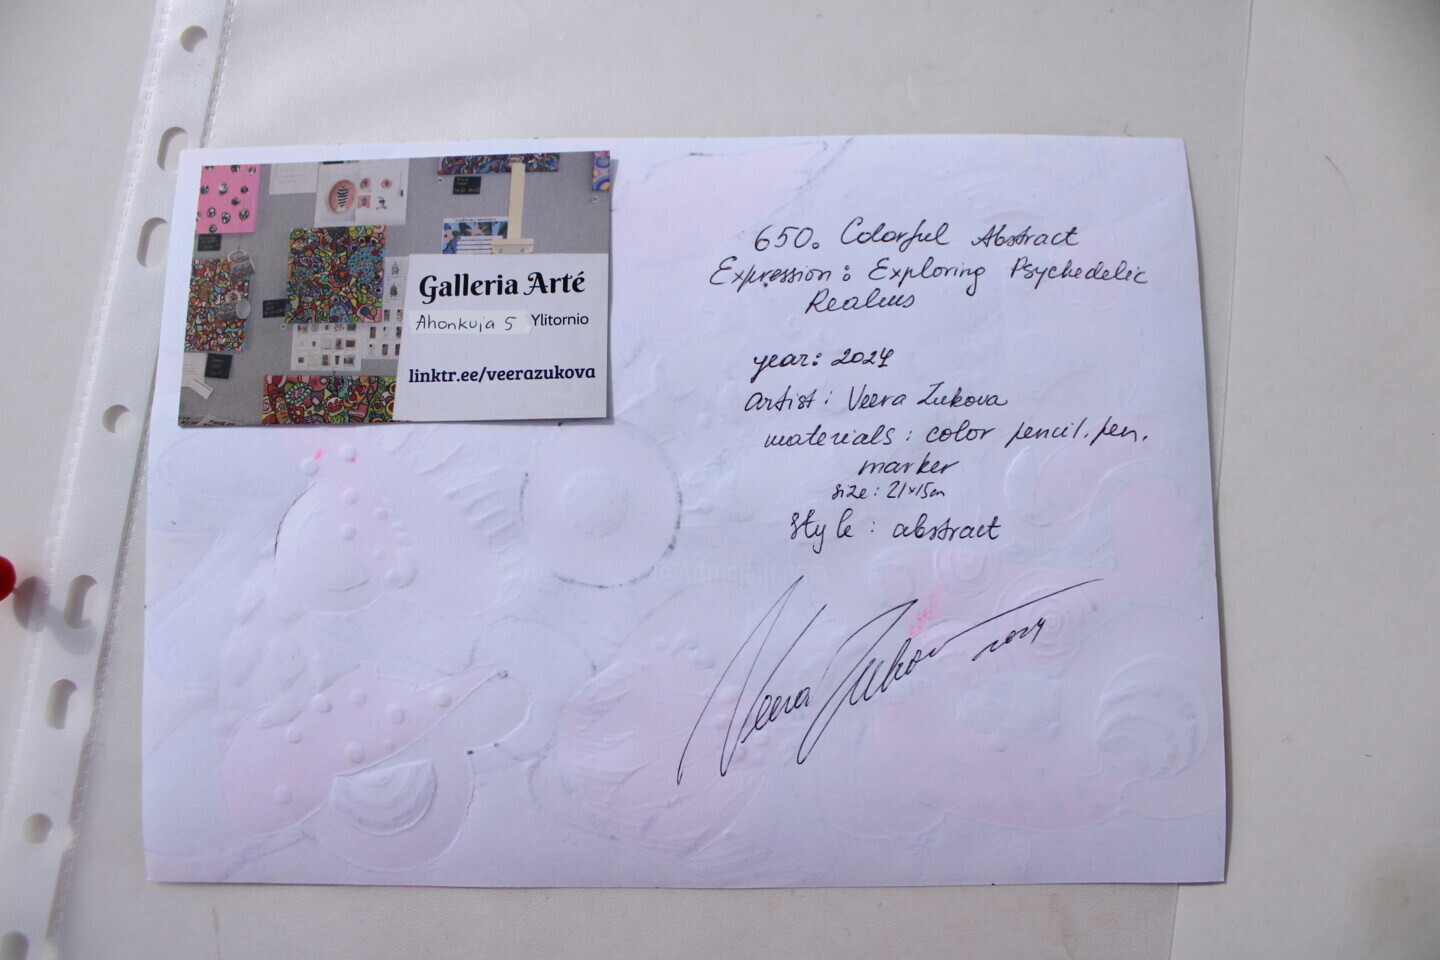 Galleria Arté
Ahonkuja 5 Ylitornio
linktr.ee/veerazukova
650. Colorful Abstract
Expression: Exploring Psychedelic
Realms
year: 2024
artist: Veera Zukova
materials: color pencil, pen,
marker
size: 21x15cm
style: abstract
Veera Zukov 2024